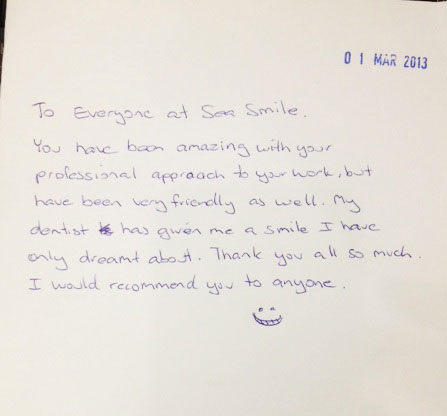 01 MAR 2013
To Everyone at Sea Smile.
You have been amazing with your
professional approach to your work, but
have been very friendly as well. My
dentist has given me a smile I have
only dreamt about. Thank you all so much.
I would recommend you to anyone.